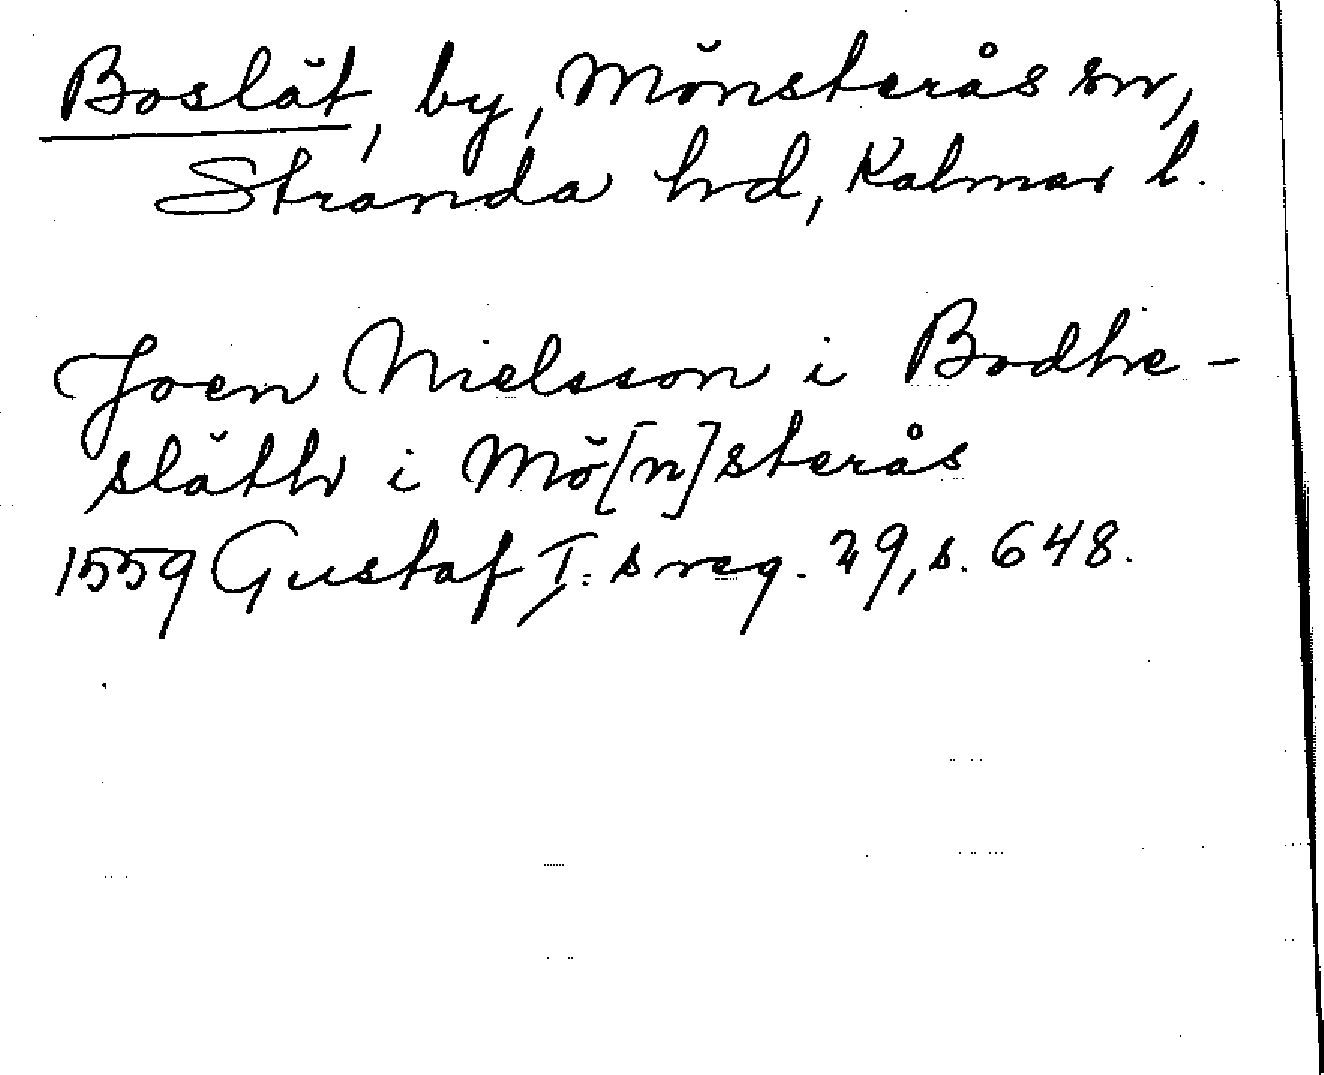 Boslät, by, Mönsterås sn,
Stranda hd, Kalmar l.
Joen Nielsson i Bodhe-
släth i Mö[n]sterås
1559 Gustaf I:s reg. 29, s. 648.